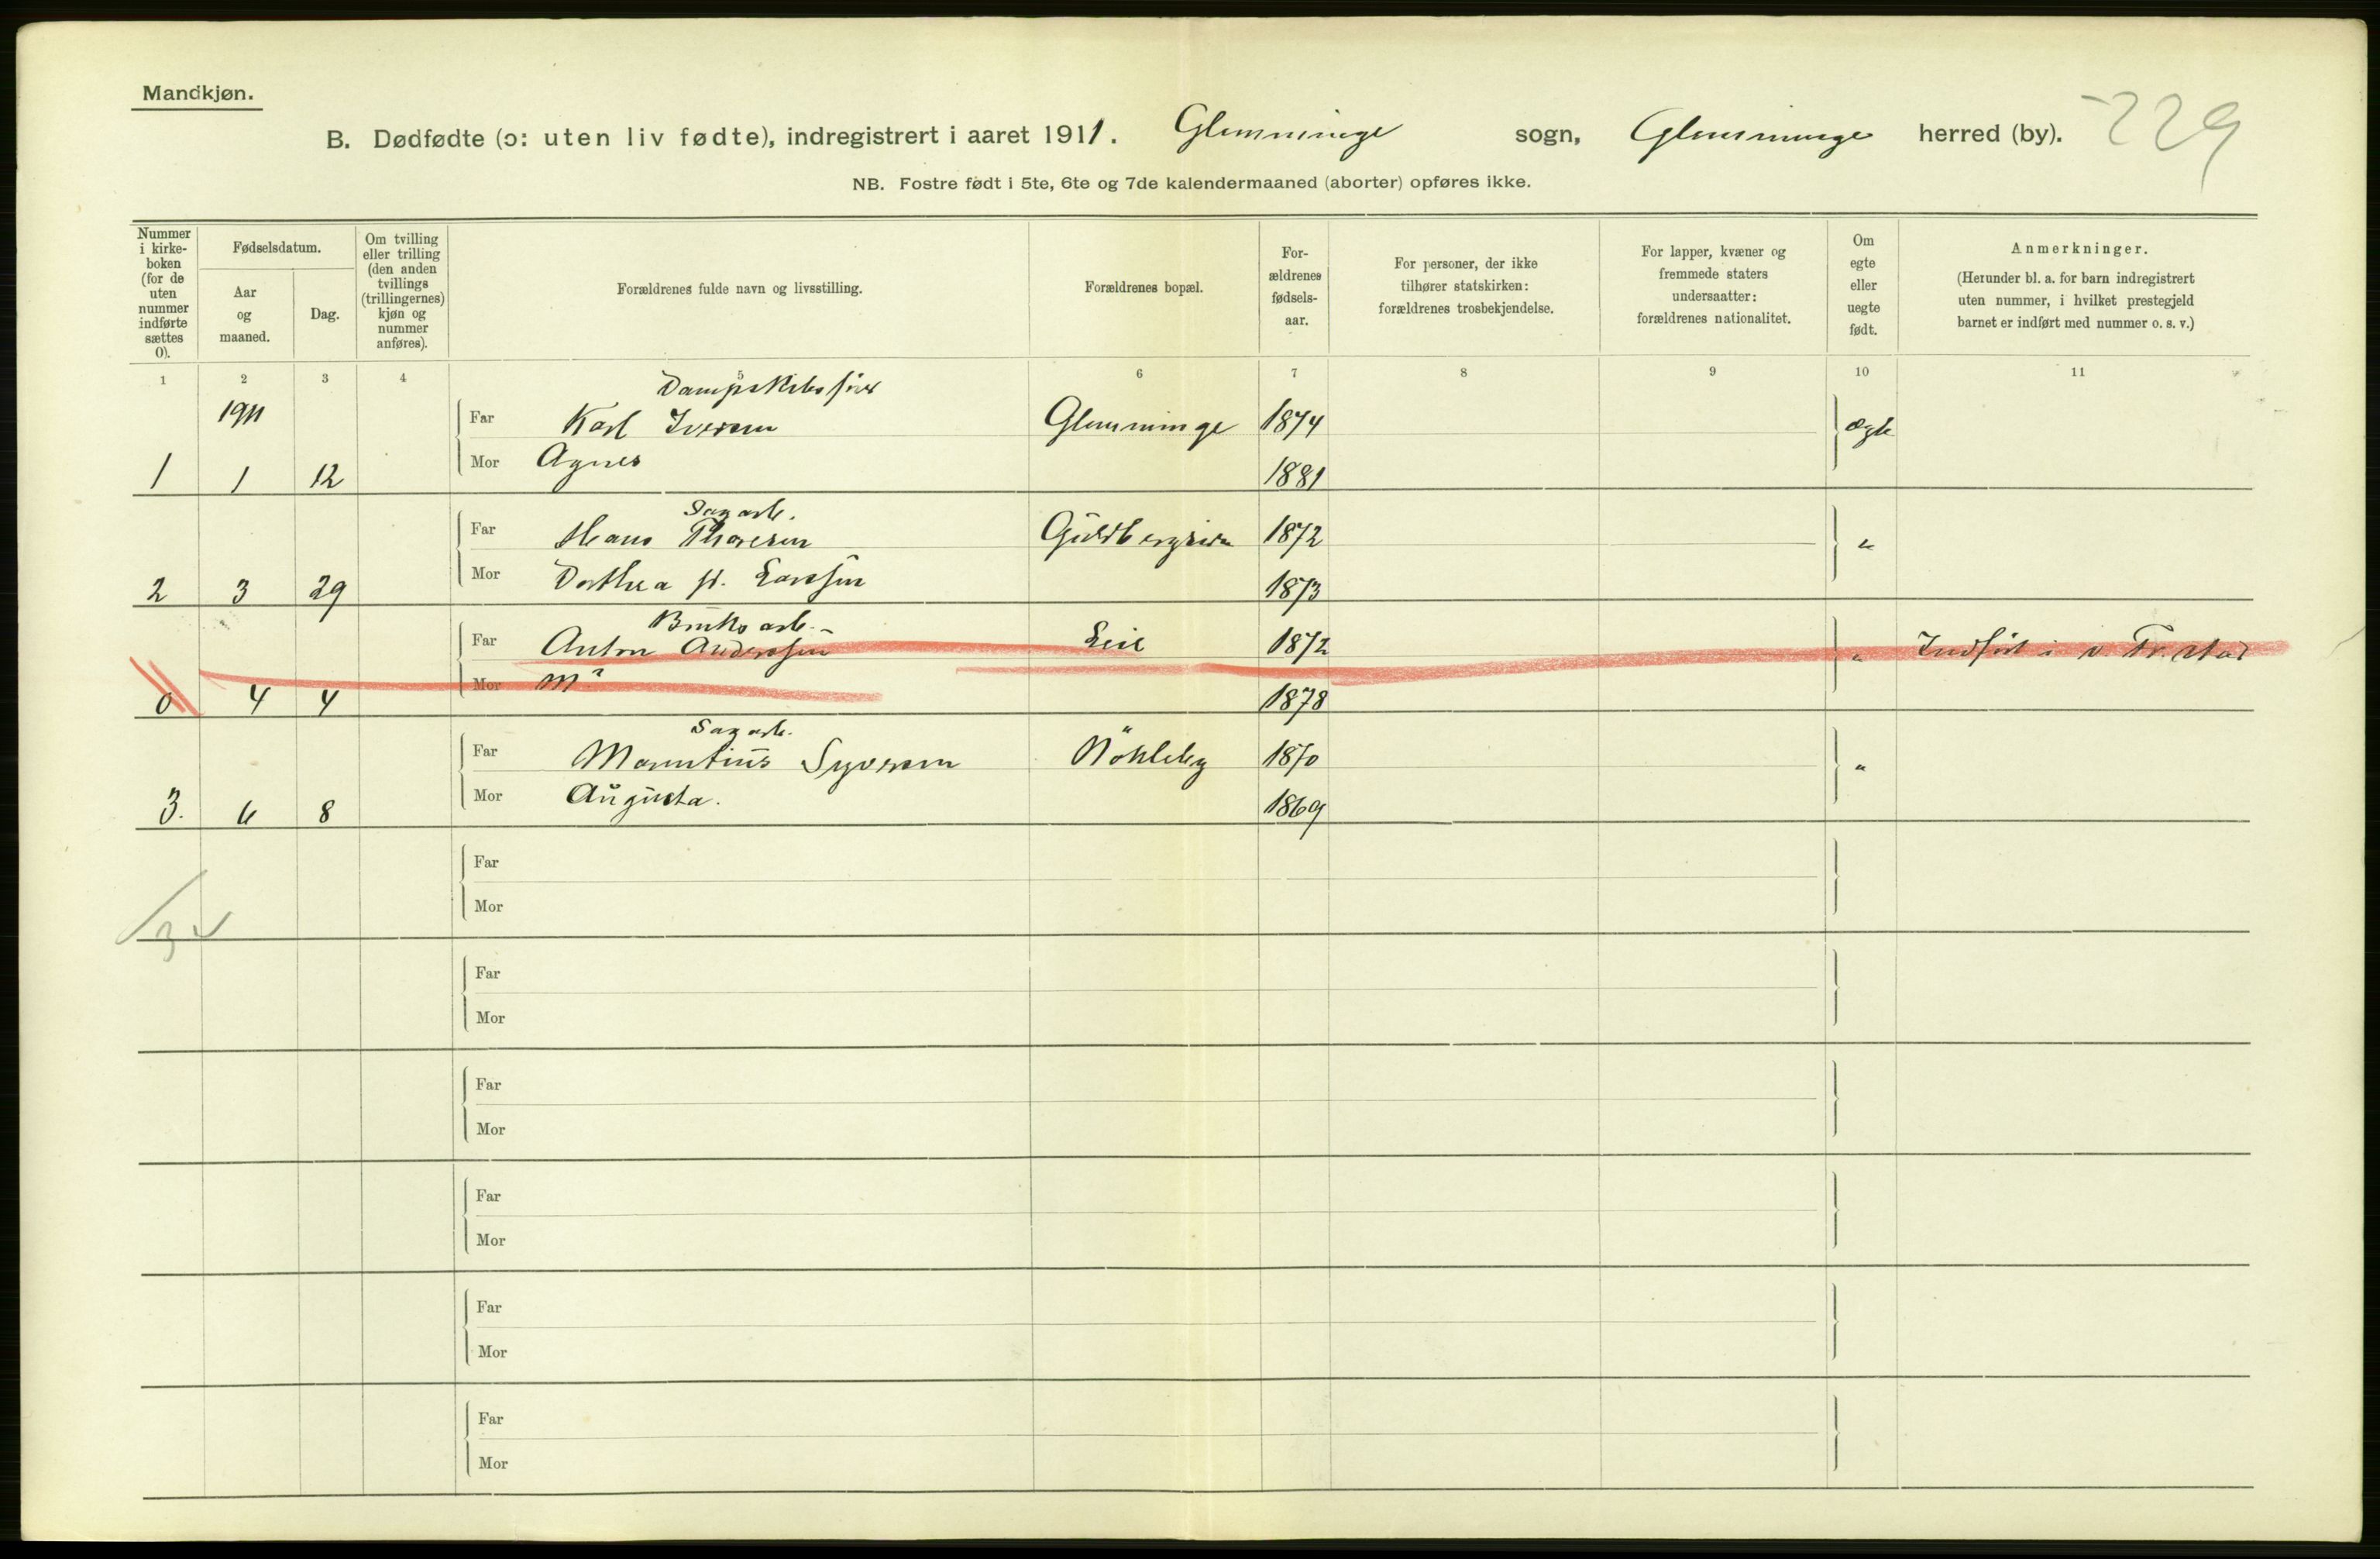 Mandkjøn.
B. Dødfødte (ɔ: uten liv fødte), indregistrert i aaret 1911. Glemminge sogn, Glemminge herred (by). 229
NB. Fostre født i 5te, 6te og 7de kalendermaaned (aborter) opføres ikke.
Nummer i kirke- boken (for de uten nummer indførte sættes 0).
Fødselsdatum.
Aar og maaned.
Dag.
Om tvilling eller trilling (den anden tvillings (trillingernes) kjøn og nummer anføres).
Forældrenes fulde navn og livsstilling.
Forældrenes bopæl.
For- ældrenes fødsels- aar.
For personer, der ikke tilhører statskirken: forældrenes trosbekjendelse.
For lapper, kvæner og fremmede staters undersaatter: forældrenes nationalitet.
Om egte eller uegte født.
Anmerkninger.
(Herunder bl. a. for barn indregistrert uten nummer, i hvilket prestegjeld barnet er indført med nummer o. s. v.)
1 2 3 4 5 6 7 8 9 10 11
Dampskibsfører
1911 Far Karl Iversen Glemminge 1874 ægte
1 1 12 Mor Agnes 1881
Sagarb.
Far Hans Thoresen Guldbergsiden 1872 "
2 3 29 Mor Dorthea f. Larssen 1873
Bruksarb.
Far Anton Anderssen Leie 1872 " Indført i v. Fr.stad
0 4 4 Mor M 1878
Sagarb.
Far Maurntius Syversen Nökleby 1870 "
3. 6 8 Mor Augusta. 1869
Far
Mor
3
Far
Mor
Far
Mor
Far
Mor
Far
Mor
Far
Mor